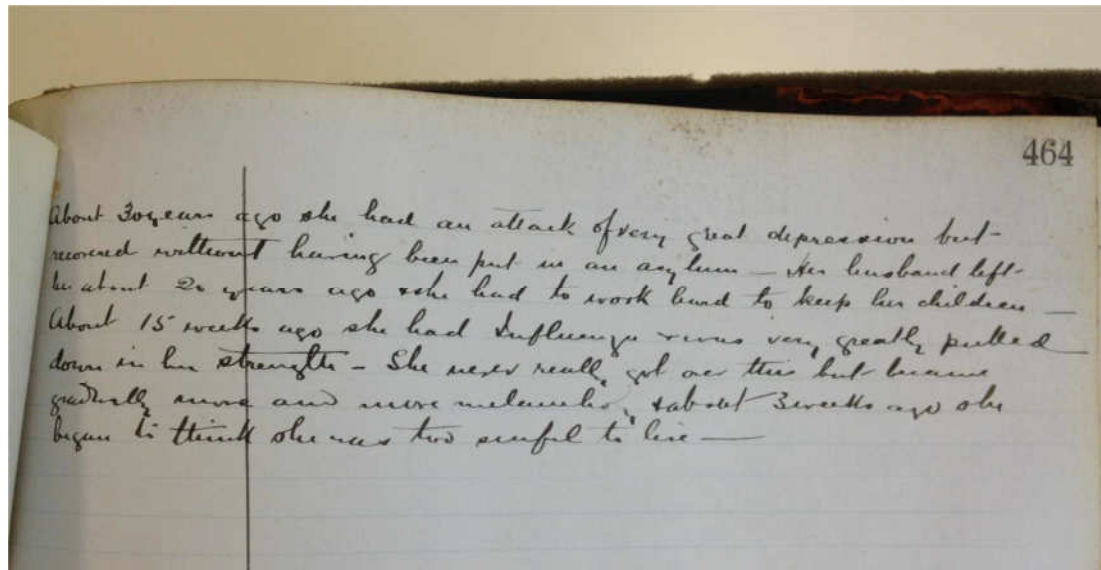 464
About 30 years ago she had an attack of very great depression but
recovered without having been put in an asylum — Her husband left
her about 20 years ago & she had to work hard to keep her children —
About 15 weeks ago she had Influenza & was very greatly pulled
down in her strength — She never really got over this but became
gradually more and more melancholy, & about 3 weeks ago she
began to think she was too sinful to live —